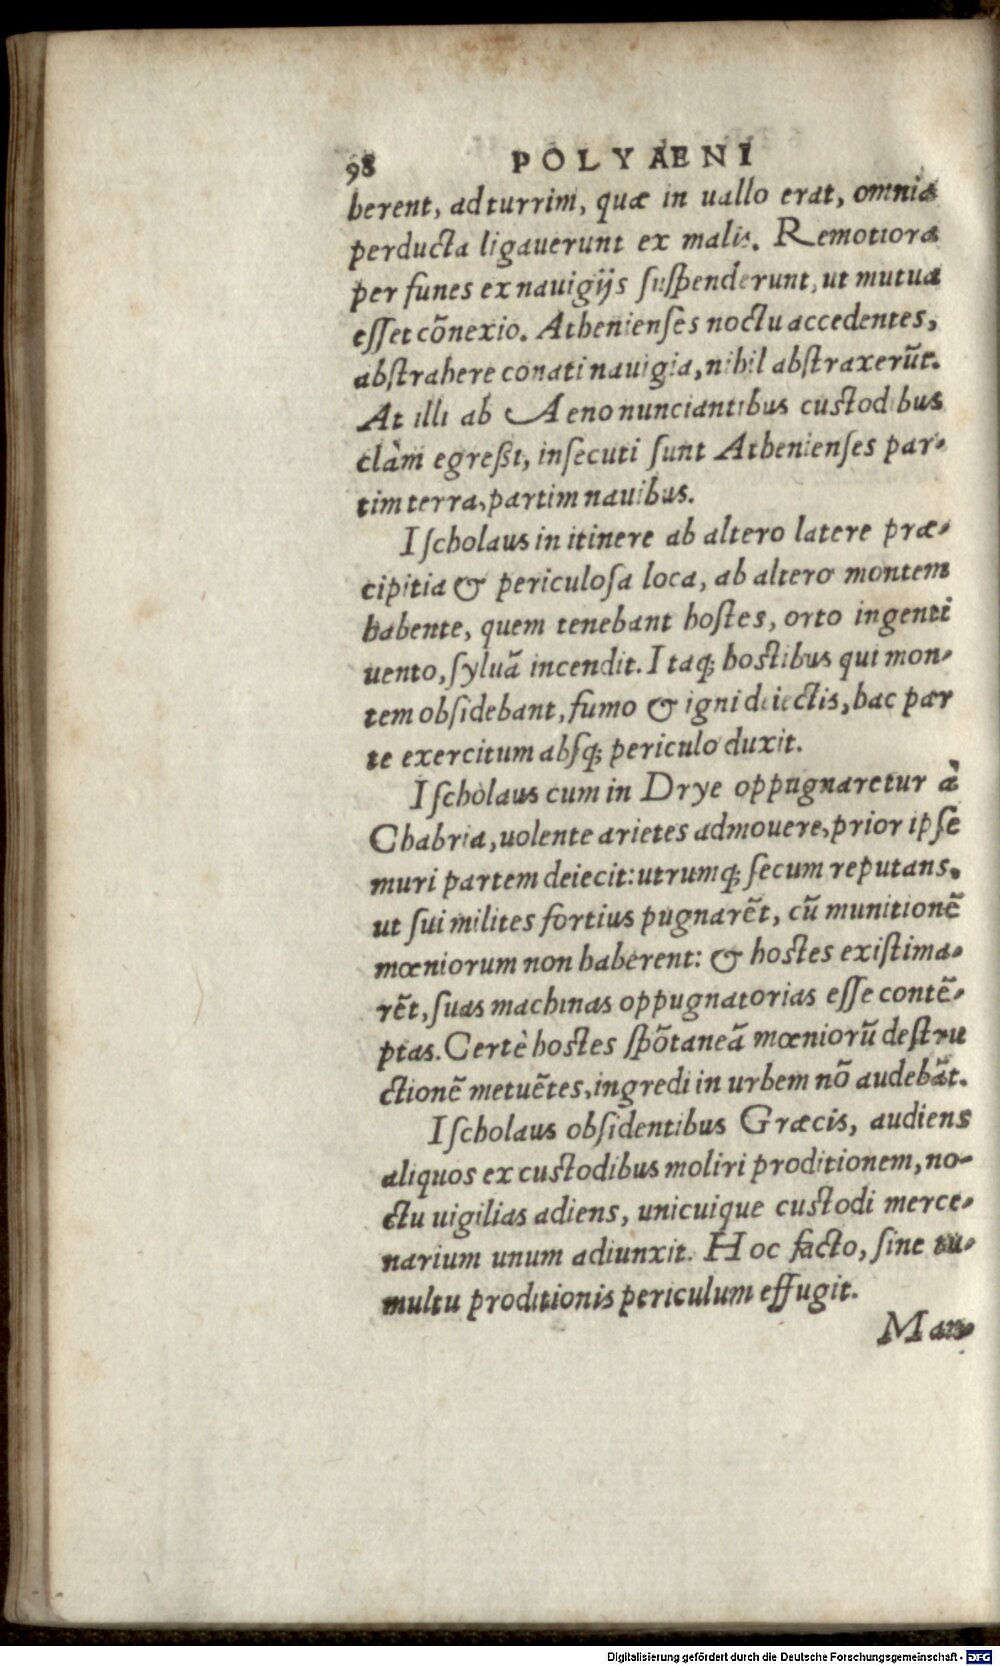 98 POLYAENI
berent, ad turrim, quæ in uallo erat, omnia
perducta ligauerunt ex malis. Remotiora
per funes ex nauigijs suspenderunt, ut mutua
esset cõnexio. Athenienses noctu accedentes,
abstrahere conati nauigia, nihil abstraxerũt.
At illi ab Aeno nunciantibus custodibus
clàm egreßi, insecuti sunt Athenienses par-
tim terra, partim nauibus.
Ischolaus in itinere ab altero latere præ-
cipitia & periculosa loca, ab altero montem
habente, quem tenebant hostes, orto ingenti
uento, syluã incendit. Itaq; hostibus qui mon-
tem obsidebant, fumo & igni deiectis, hac par
te exercitum absq; periculo duxit.
Ischolaus cum in Drye oppugnaretur à
Chabria, uolente arietes admouere, prior ipse
muri partem deiecit: utrumq; secum reputans,
ut sui milites fortius pugnarẽt, cũ munitionẽ
mœniorum non haberent: & hostes existima-
rẽt, suas machinas oppugnatorias esse contẽ-
ptas. Certè hostes spõtaneã mœniorũ destru
ctionẽ metuẽtes, ingredi in urbem nõ audebãt.
Ischolaus obsidentibus Græcis, audiens
aliquos ex custodibus moliri proditionem, no-
ctu uigilias adiens, unicuique custodi merce-
narium unum adiunxit. Hoc facto, sine tu-
multu proditionis periculum effugit.
Man-
Digitalisierung gefördert durch die Deutsche Forschungsgemeinschaft - DFG